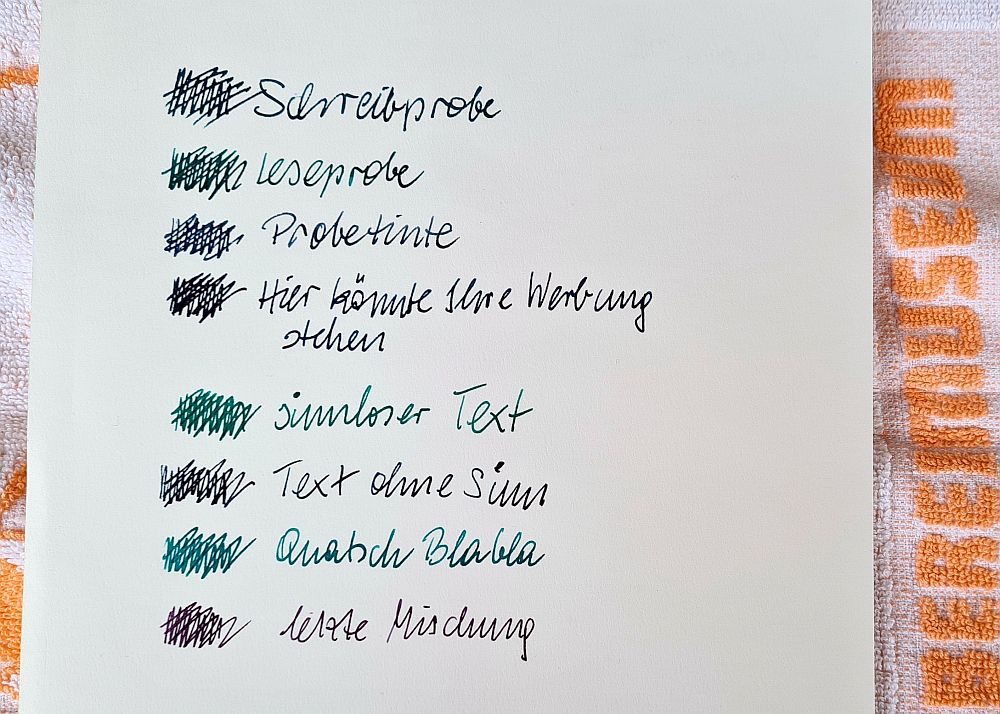 Schreibprobe
Leseprobe
Probetinte
Hier könnte Ihre Werbung
stehen
sinnloser Text
Text ohne Sinn
Quatsch Blabla
letzte Mischung
BEREITMUSEUM